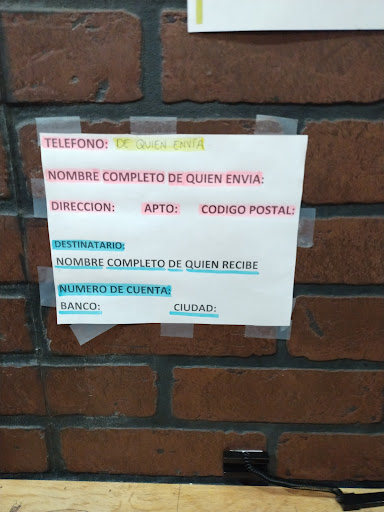 TELEFONO: DE QUIEN ENVIA
NOMBRE COMPLETO DE QUIEN ENVIA:
DIRECCION: APTO: CODIGO POSTAL:
DESTINATARIO:
NOMBRE COMPLETO DE QUIEN RECIBE
NUMERO DE CUENTA:
BANCO: CIUDAD: